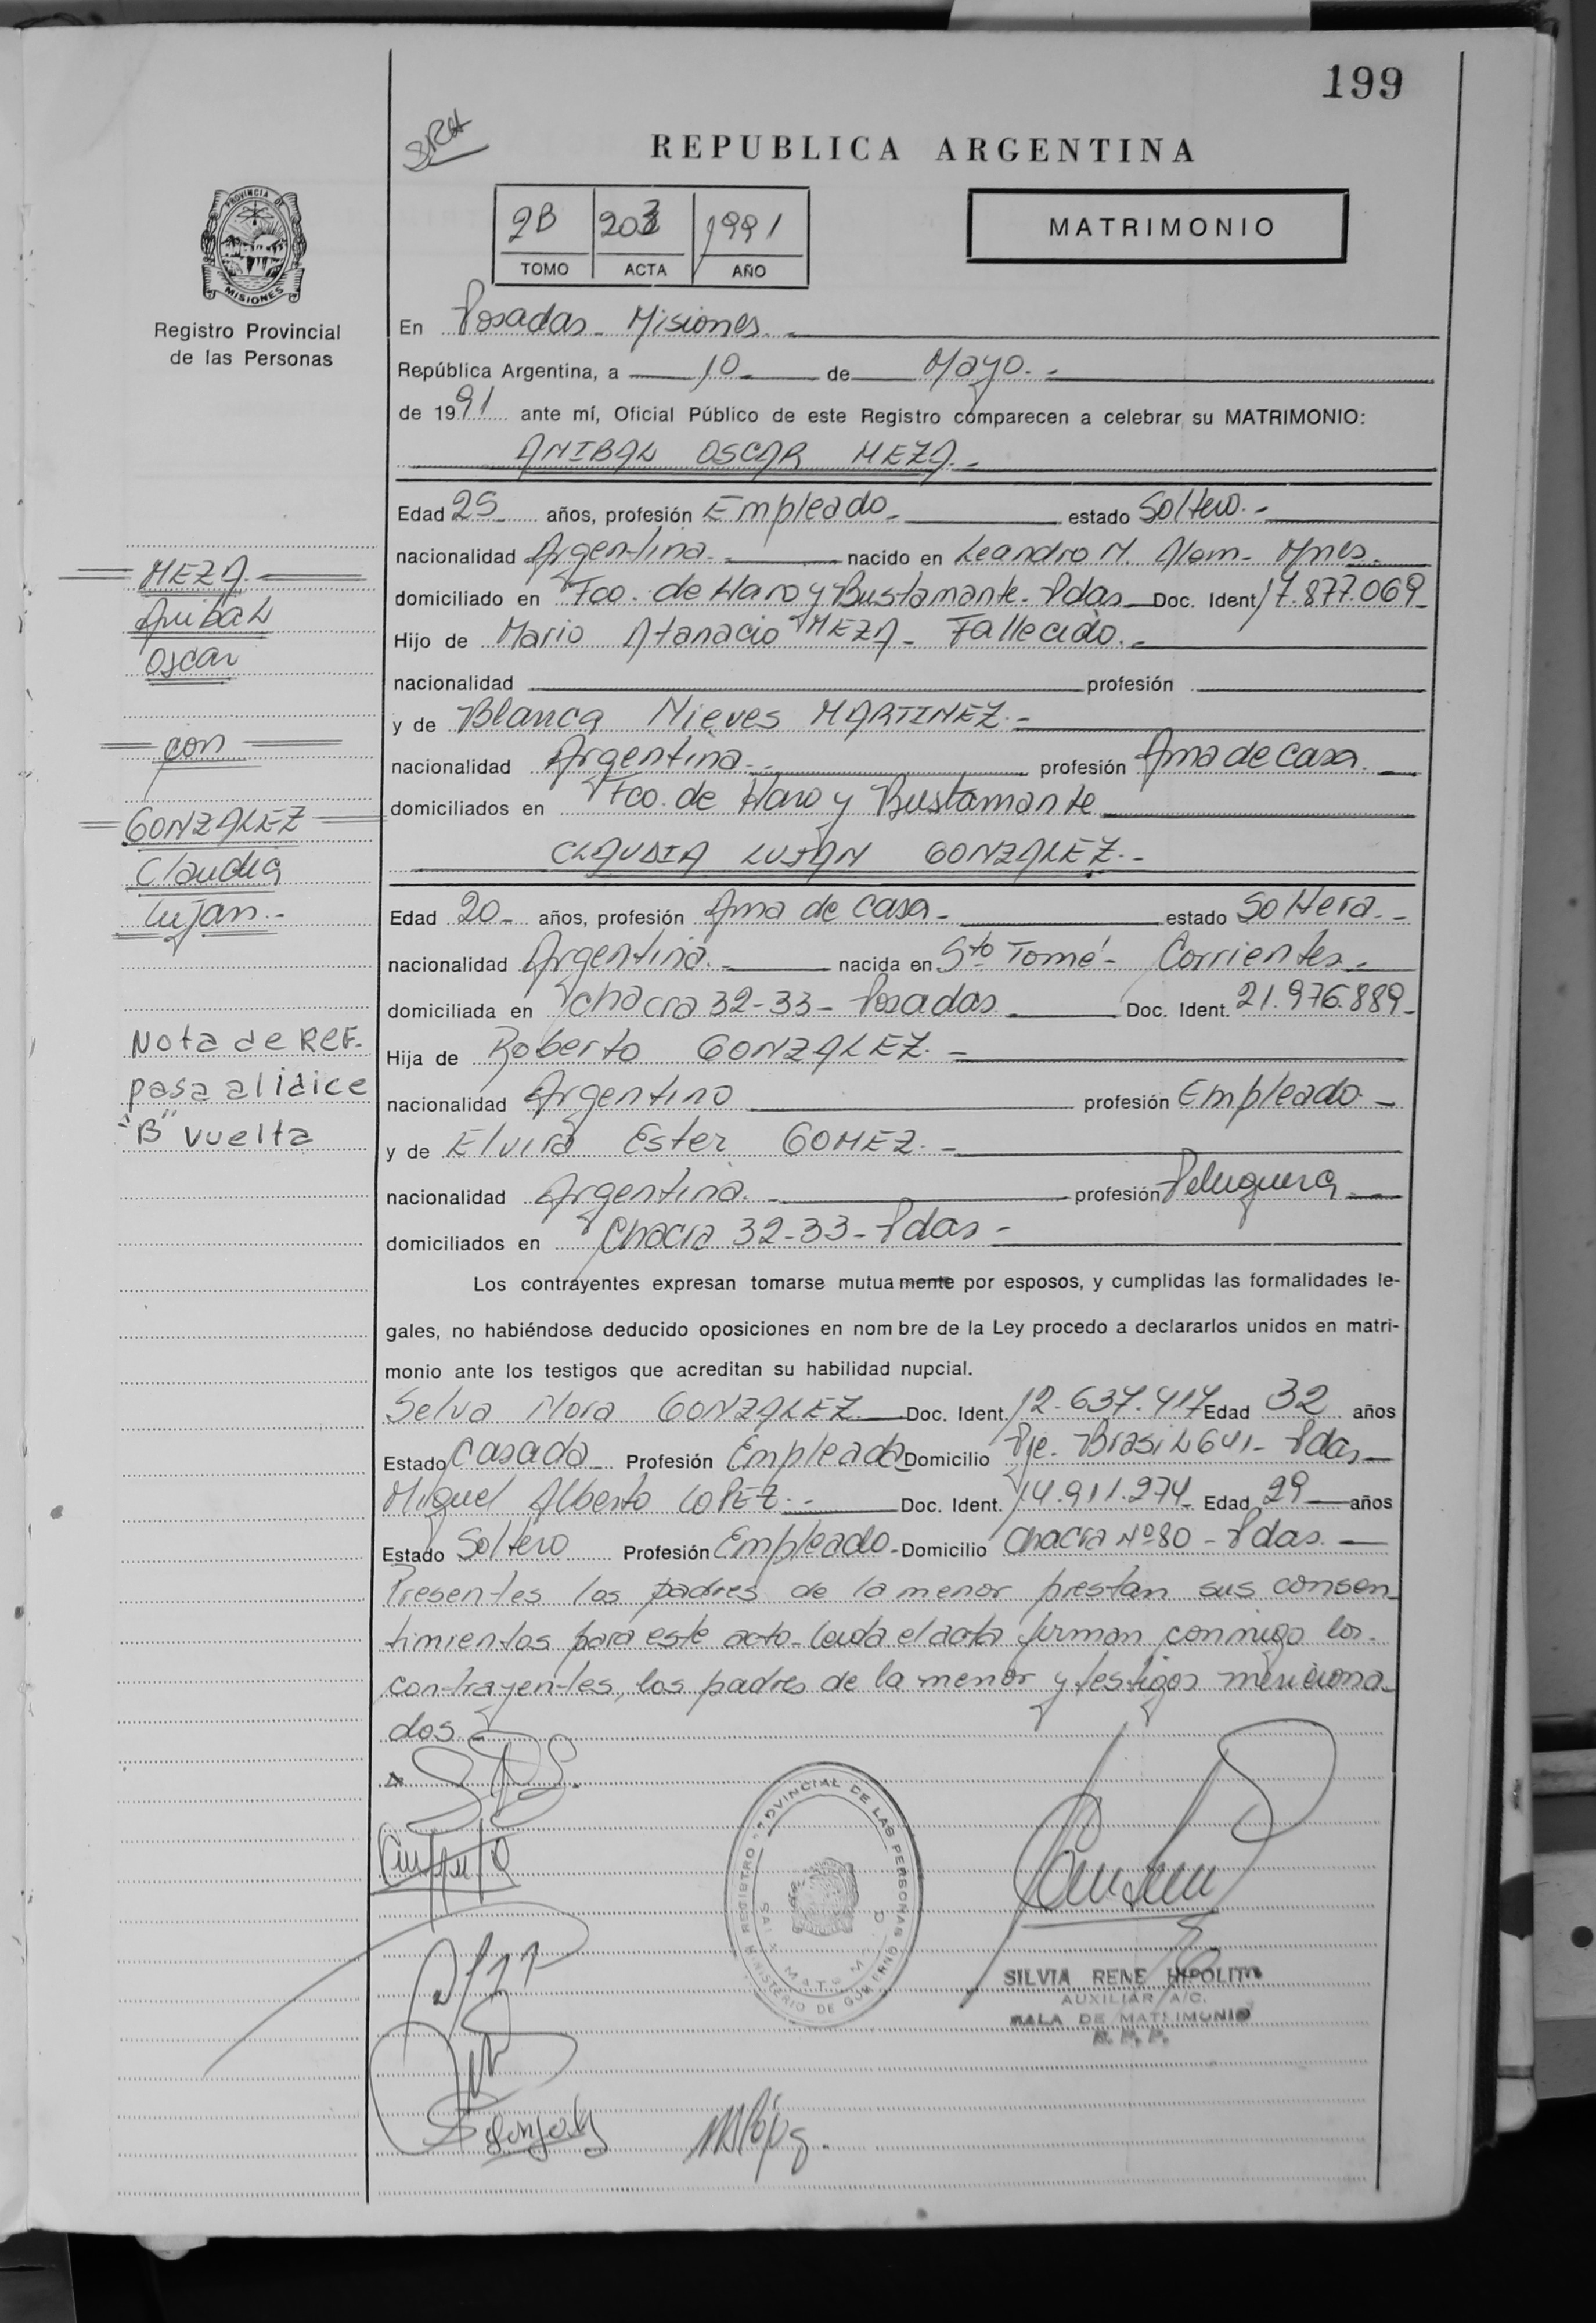 199
REPUBLICA ARGENTINA
PROVINCIA DE
MISIONES
Registro Provincial
de las Personas
2B 203 1991
TOMO ACTA AÑO
MATRIMONIO
En Posadas - Misiones.-
República Argentina, a 10 de Mayo.-
de 1991 ante mí, Oficial Público de este Registro comparecen a celebrar su MATRIMONIO:
ANIBAL OSCAR MEZA.-
Edad 25 años, profesión Empleado - estado Soltero.-
nacionalidad Argentina.- nacido en Leandro N. Alem - Mnes.
domiciliado en Fco. de Haro y Bustamante - Pdas Doc. Ident 17.877.069-
Hijo de Mario Atanacio MEZA - Fallecido.-
nacionalidad profesión
y de Blanca Nieves MARTINEZ.-
nacionalidad Argentina.- profesión Ama de casa.
domiciliados en Fco. de Haro y Bustamante
CLAUDIA LUJAN GONZALEZ.-
Edad 20- años, profesión Ama de casa- estado Soltera.-
nacionalidad Argentina.- nacida en Sto Tomé - Corrientes.-
domiciliada en Chacra 32-33 - Posadas. Doc. Ident. 21.976.889-
Hija de Roberto GONZALEZ.-
nacionalidad Argentino profesión Empleado.-
y de Elvira Ester GOMEZ.-
nacionalidad Argentina.- profesión Peluquera
domiciliados en Chacra 32-33 - Pdas -
Los contrayentes expresan tomarse mutuamente por esposos, y cumplidas las formalidades le-
gales, no habiéndose deducido oposiciones en nom bre de la Ley procedo a declararlos unidos en matri-
monio ante los testigos que acreditan su habilidad nupcial.
Selva Nora GONZALEZ Doc. Ident. 12.637.417 Edad 32 años
Estado Casada Profesión Empleada Domicilio Pje. Brasil 641 - Pdas
Miguel Alberto LOPEZ.- Doc. Ident. 14.911.274 Edad 29 años
Estado Soltero Profesión Empleado - Domicilio Chacra Nº 80 - Pdas.
Presentes los padres de la menor prestan sus consen
timientos para este acto - leída el acta firman conmigo los
contrayentes, los padres de la menor y testigos menciona
dos.-
MEZA
Anibal
Oscar
con
GONZALEZ
Claudia
Lujan.-
Nota de REF.
pasa al idice
"B" vuelta
REGISTRO PROVINCIAL DE LAS PERSONAS
MINISTERIO DE GOBIERNO
SILVIA RENE HIPOLITO
AUXILIAR A/C.
SALA DE MATRIMONIO